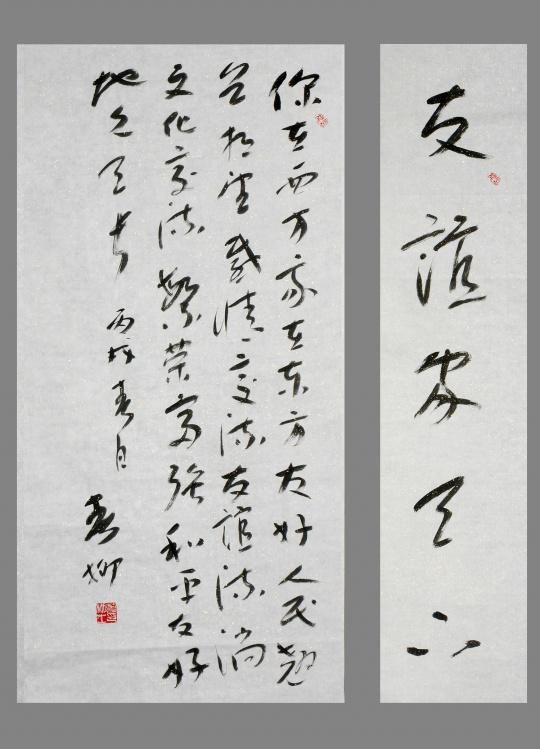 友谊天下
你在西方我在东方友好人民翘
首相望感情交流友谊流淌
文化交流繁荣富强和平友好
地久天长 丙戌春月
春柳